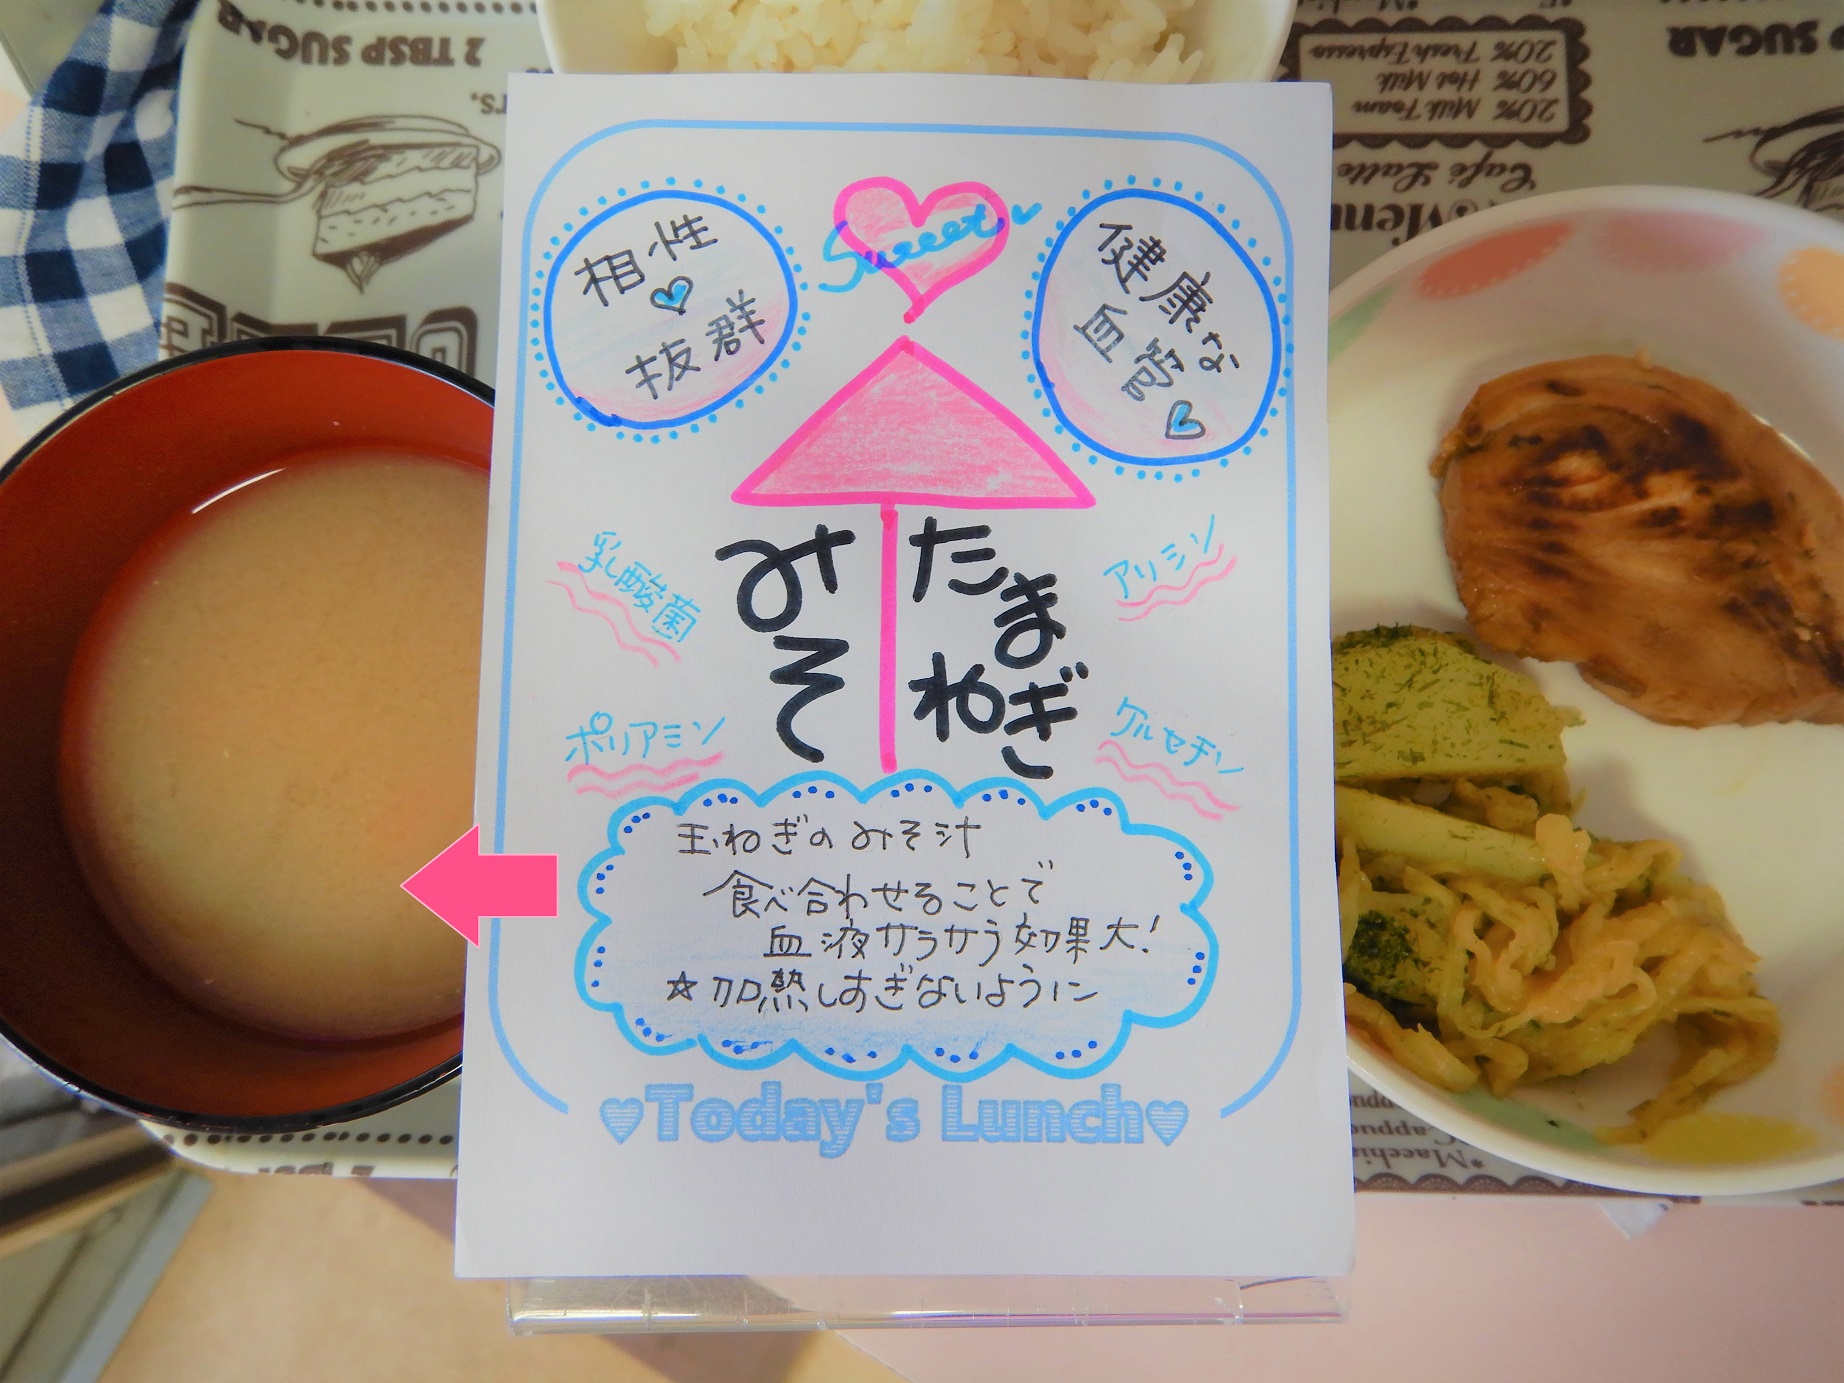 2 TBSP SUGAR
SUGAR
20% Fresh Espresso
60% Hot Milk
20% Milk Foam
Café Latte
Menu
相性
抜群
Sweet
健康な
血管
みそ
たまねぎ
乳酸菌
アリシン
ポリアミン
ケルセチン
玉ねぎのみそ汁
食べ合わせることで
血液サラサラ効果大!
☆加熱しすぎないように
♥Today's Lunch♥